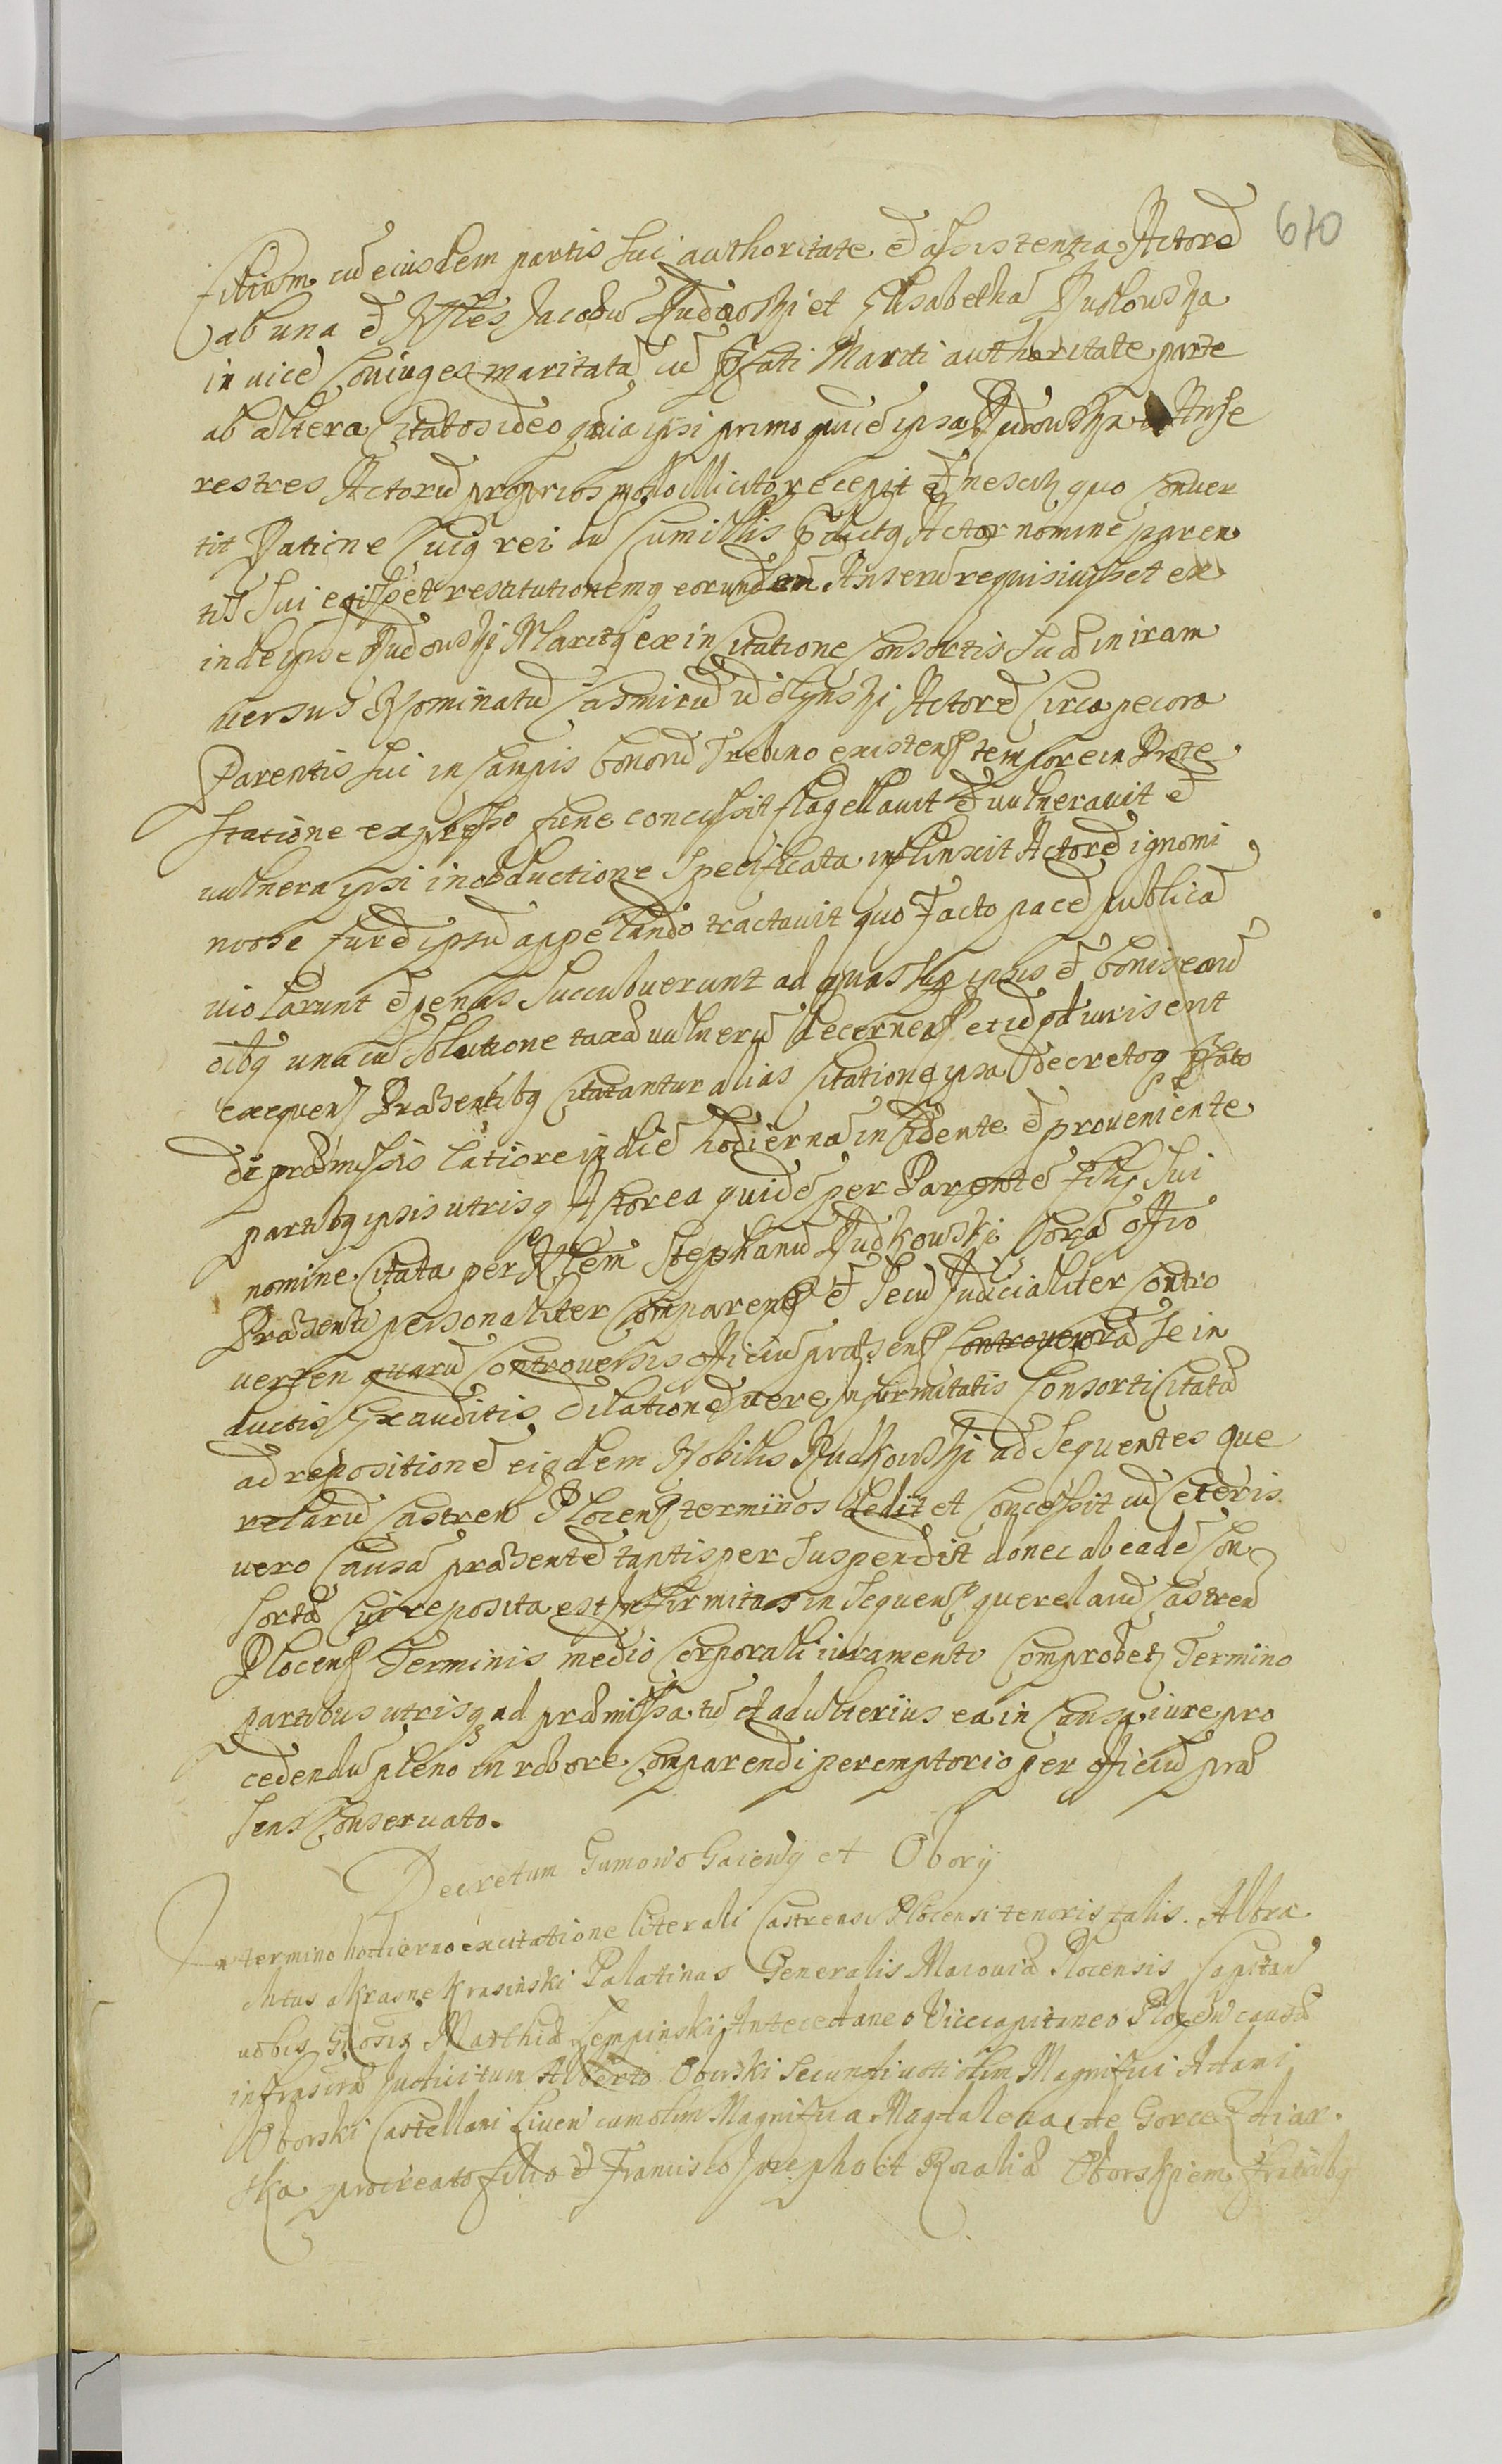 670
filium cu eiusdem partis sui authoritate et assistentia Actore
ab una et Nbles Jacobu Rudowski et Elisabetha Rudkowska
in vice Coniuges maritata cu pfati Mariti authoritate parte
ab altera Citatos ideo quia ipsi primo quide ipsa Rudowska Anse
restres Actoru proprios modo illicito recepit et nescitz quo conver
tit Ratione Cuiq rei du Cum illis pductq Actor nomine paren
tis sui egisset restitutionemq eorundem Anseru requisivisset ex
inde ipse Rudowski Maritq ex in Citatione Consortis sua in iram
versus Nominatu Casimiru Actore Circa pecora
Parentis sui in Campis bonoru Trebino existen tempore in Prote
statione expresso fune concussit flagellavit et vulneravit et
vulnera ipsi in obductione specificata inflinxit Actore ignomi
niose fure ipsu appelando tractavit quo facto pace publica
violarunt et penas succubuerunt ad quas sup ipsis et bonis eoru
oibq una cu solutione taxa vulneru decernen et id qd iuris erit
exequen Prasentibq Citatantur alias Citatione ipsa decretoq pfato
de pramissis latiore in die hodierna incidente et proveniente
partibq ipsis utrisq Actorea quide per Parente filij sui
nomine Citata per Nblem Stephanu Rudkowski Cora offio
Prasenti personaliter Comparen et secu Judicialiter Contro
versen quaru Controversis officiu prasens Controversia se in
ductis Exauditis dilatione vere infirmitatis Consorti Citata
ad repositione eiqdem Nobilis Rudkowski ad sequentes que
relaru Castren Plocen terminos dedit et Concessit cu ceteris
vero Causa prasente tantisper suspendit donec ab eade Con
sorte Cui reposita est infirmitas in sequen querelaru Castren
Plocen Terminis medio Corporali iuramento Comprobetz Termino
partibus utrisq ad pramissa tu et ad ulterius ea in Causa iure pro
cedendu pleno in robore Comparendi peremptorio per officiu pra
sens Conservato.
Decretum Gumowo Gaiewy et Obory
In termino hodierno ex citatione literali Castrensi Plocensi tenoris talis. Albra
chtus a Krasne Krasinski Palatinas Generalis Masovia Plocensis Capitan
vobis Gnosis Marthia Lempinski Antecedaneo Vicecapitaneo Plocen causa
infrascra Judicitum Alberto Oborski secundi voti olim Magnifici Adami
Oborski Castellani Liven cum olim Magnifica Magdalena de Gorce
ska procreato filio et Francisco Josepho et Rosalia Oborskiem fratribq